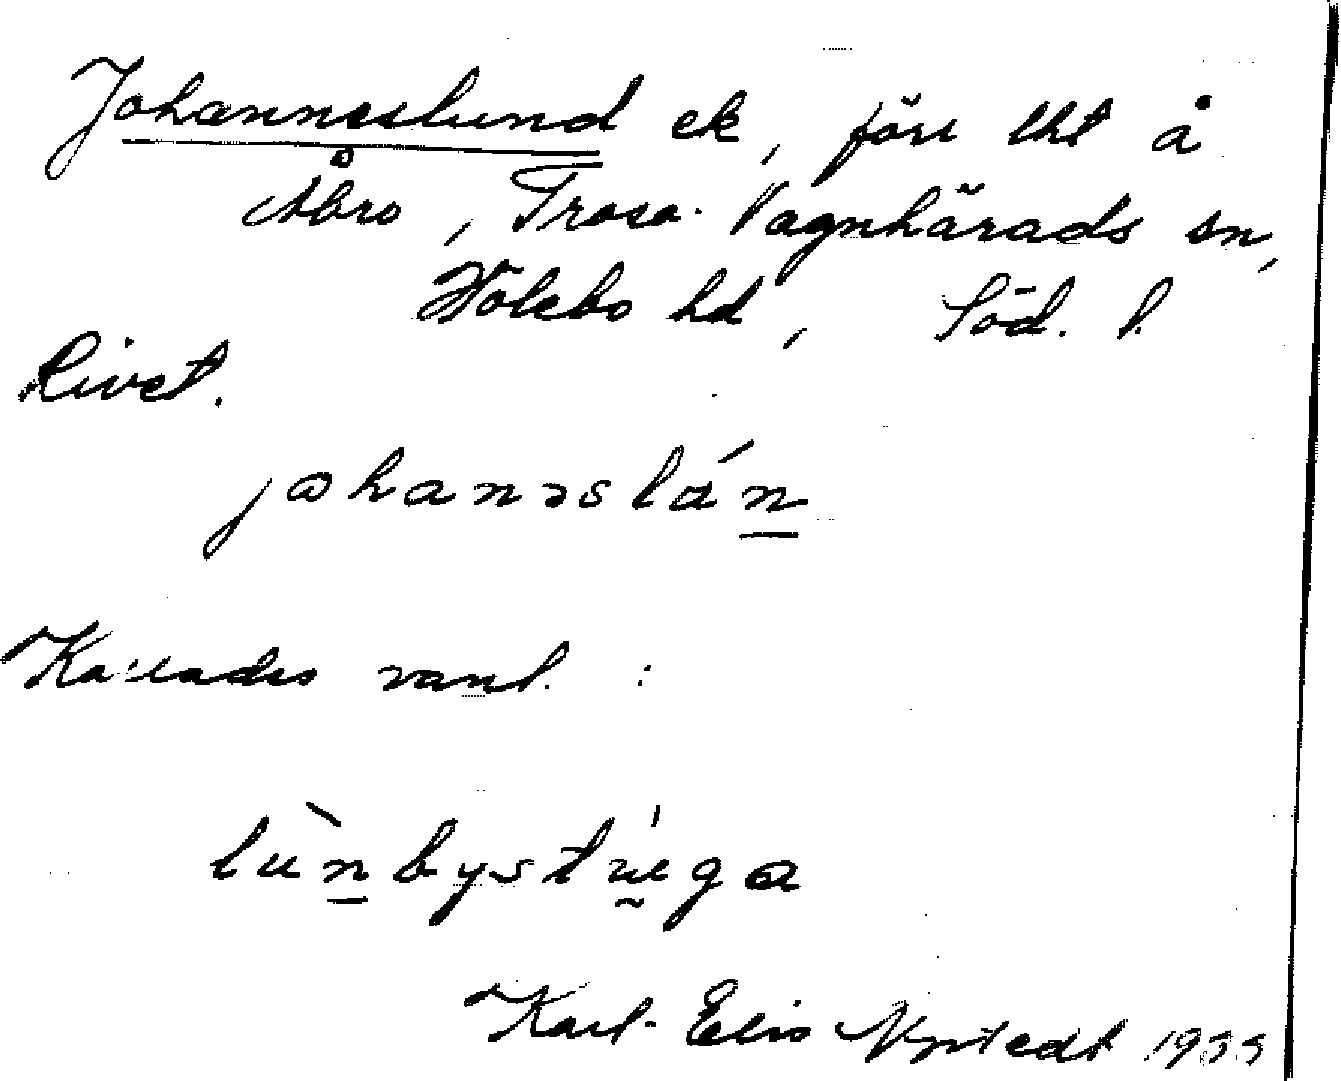 Johanneslund ek, förr lht å
Åbro, Trosa-Vagnhärads sn,
Hölebo hd, Söd. l.
Rivet.
johanəslún
Kallades vanl. :
lùnbyst
Karl-Elis Nystedt 1935